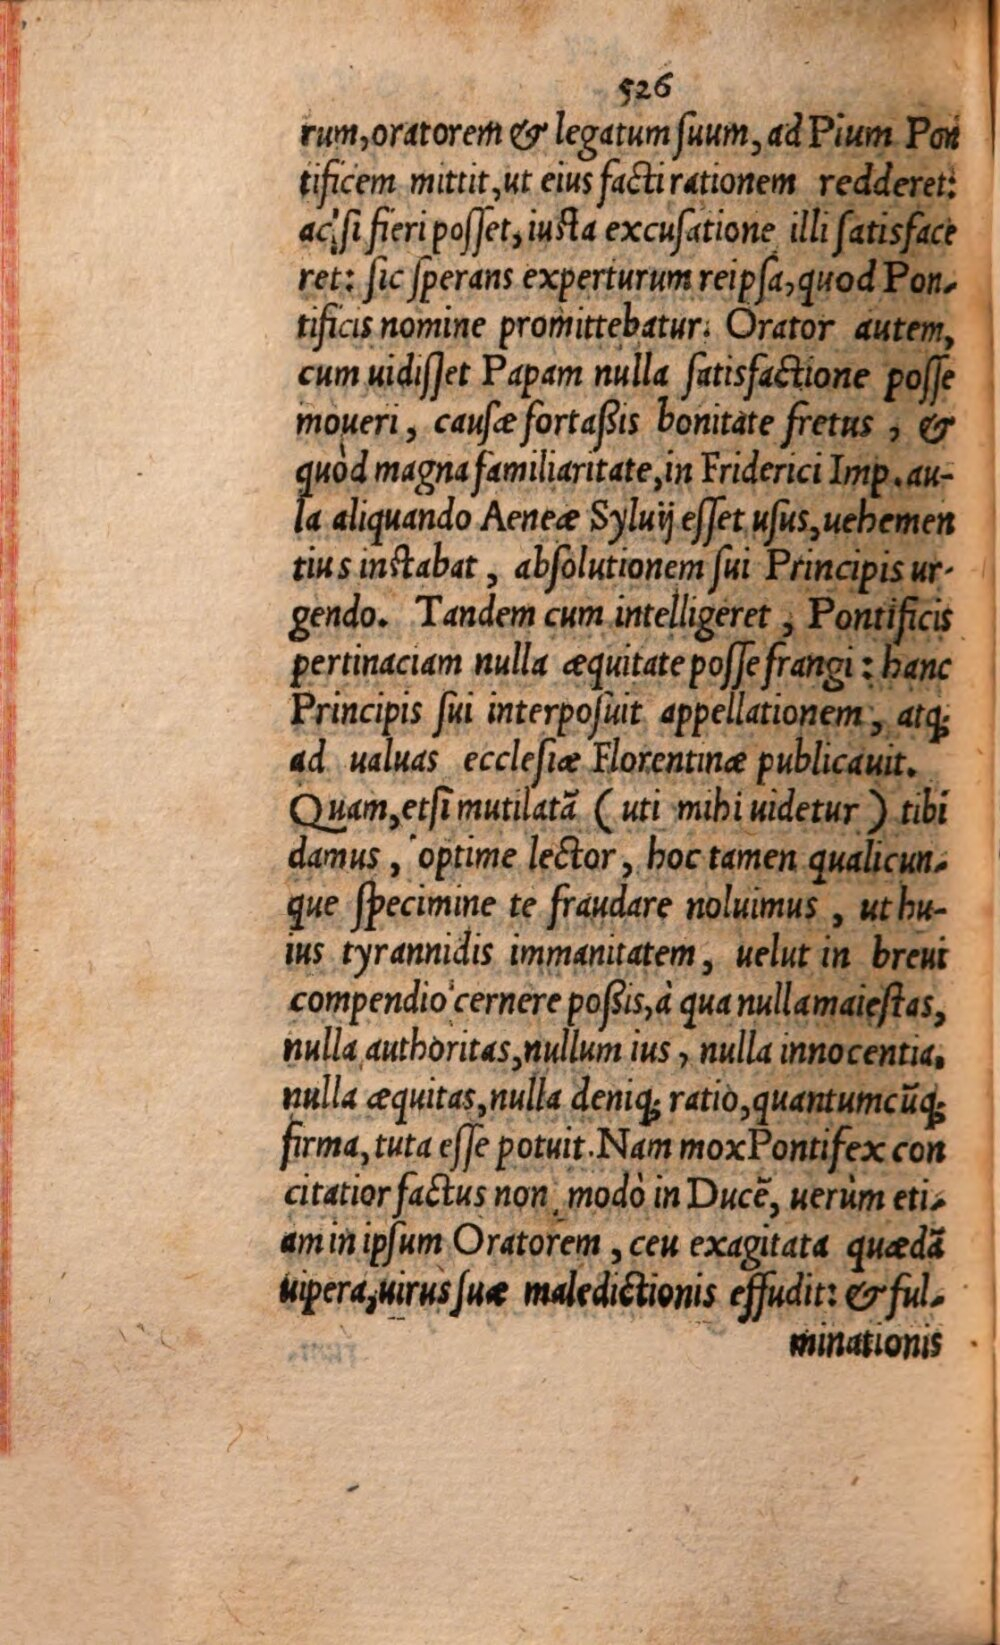 526
rum, oratorem & legatum ſuum, ad Pium Pon
tificem mittit, ut eius facti rationem redderet:
ac ſi fieri poſſet, iuſta excuſatione illi ſatisface
ret: ſic ſperans experturum reipſa, quod Pon-
tificis nomine promittebatur. Orator autem,
cum uidiſſet Papam nulla ſatisfactione poſſe
moueri, cauſæ fortaßis bonitate fretus, &
quòd magna familiaritate, in Friderici Imp. au-
la aliquando Aeneæ Syluij eſſet uſus, uehemen
tius inſtabat, abſolutionem ſui Principis ur-
gendo. Tandem cum intelligeret, Pontificis
pertinaciam nulla æquitate poſſe frangi: hanc
Principis ſui interpoſuit appellationem, atq;
ad ualuas eccleſiæ Florentinæ publicauit.
Quam, etſi mutilatã (uti mihi uidetur) tibi
damus, optime lector, hoc tamen qualicun-
que ſpecimine te fraudare noluimus, ut hu-
ius tyrannidis immanitatem, uelut in breui
compendio cernere poßis, à qua nulla maieſtas,
nulla authoritas, nullum ius, nulla innocentia,
nulla æquitas, nulla deniq; ratio, quantumcũq;
firma, tuta eſſe potuit. Nam mox Pontifex con
citatior factus non modò in Ducẽ, uerùm eti-
am in ipſum Oratorem, ceu exagitata quædã
uipera, uirus ſuæ maledictionis effudit: & ful-
minationis